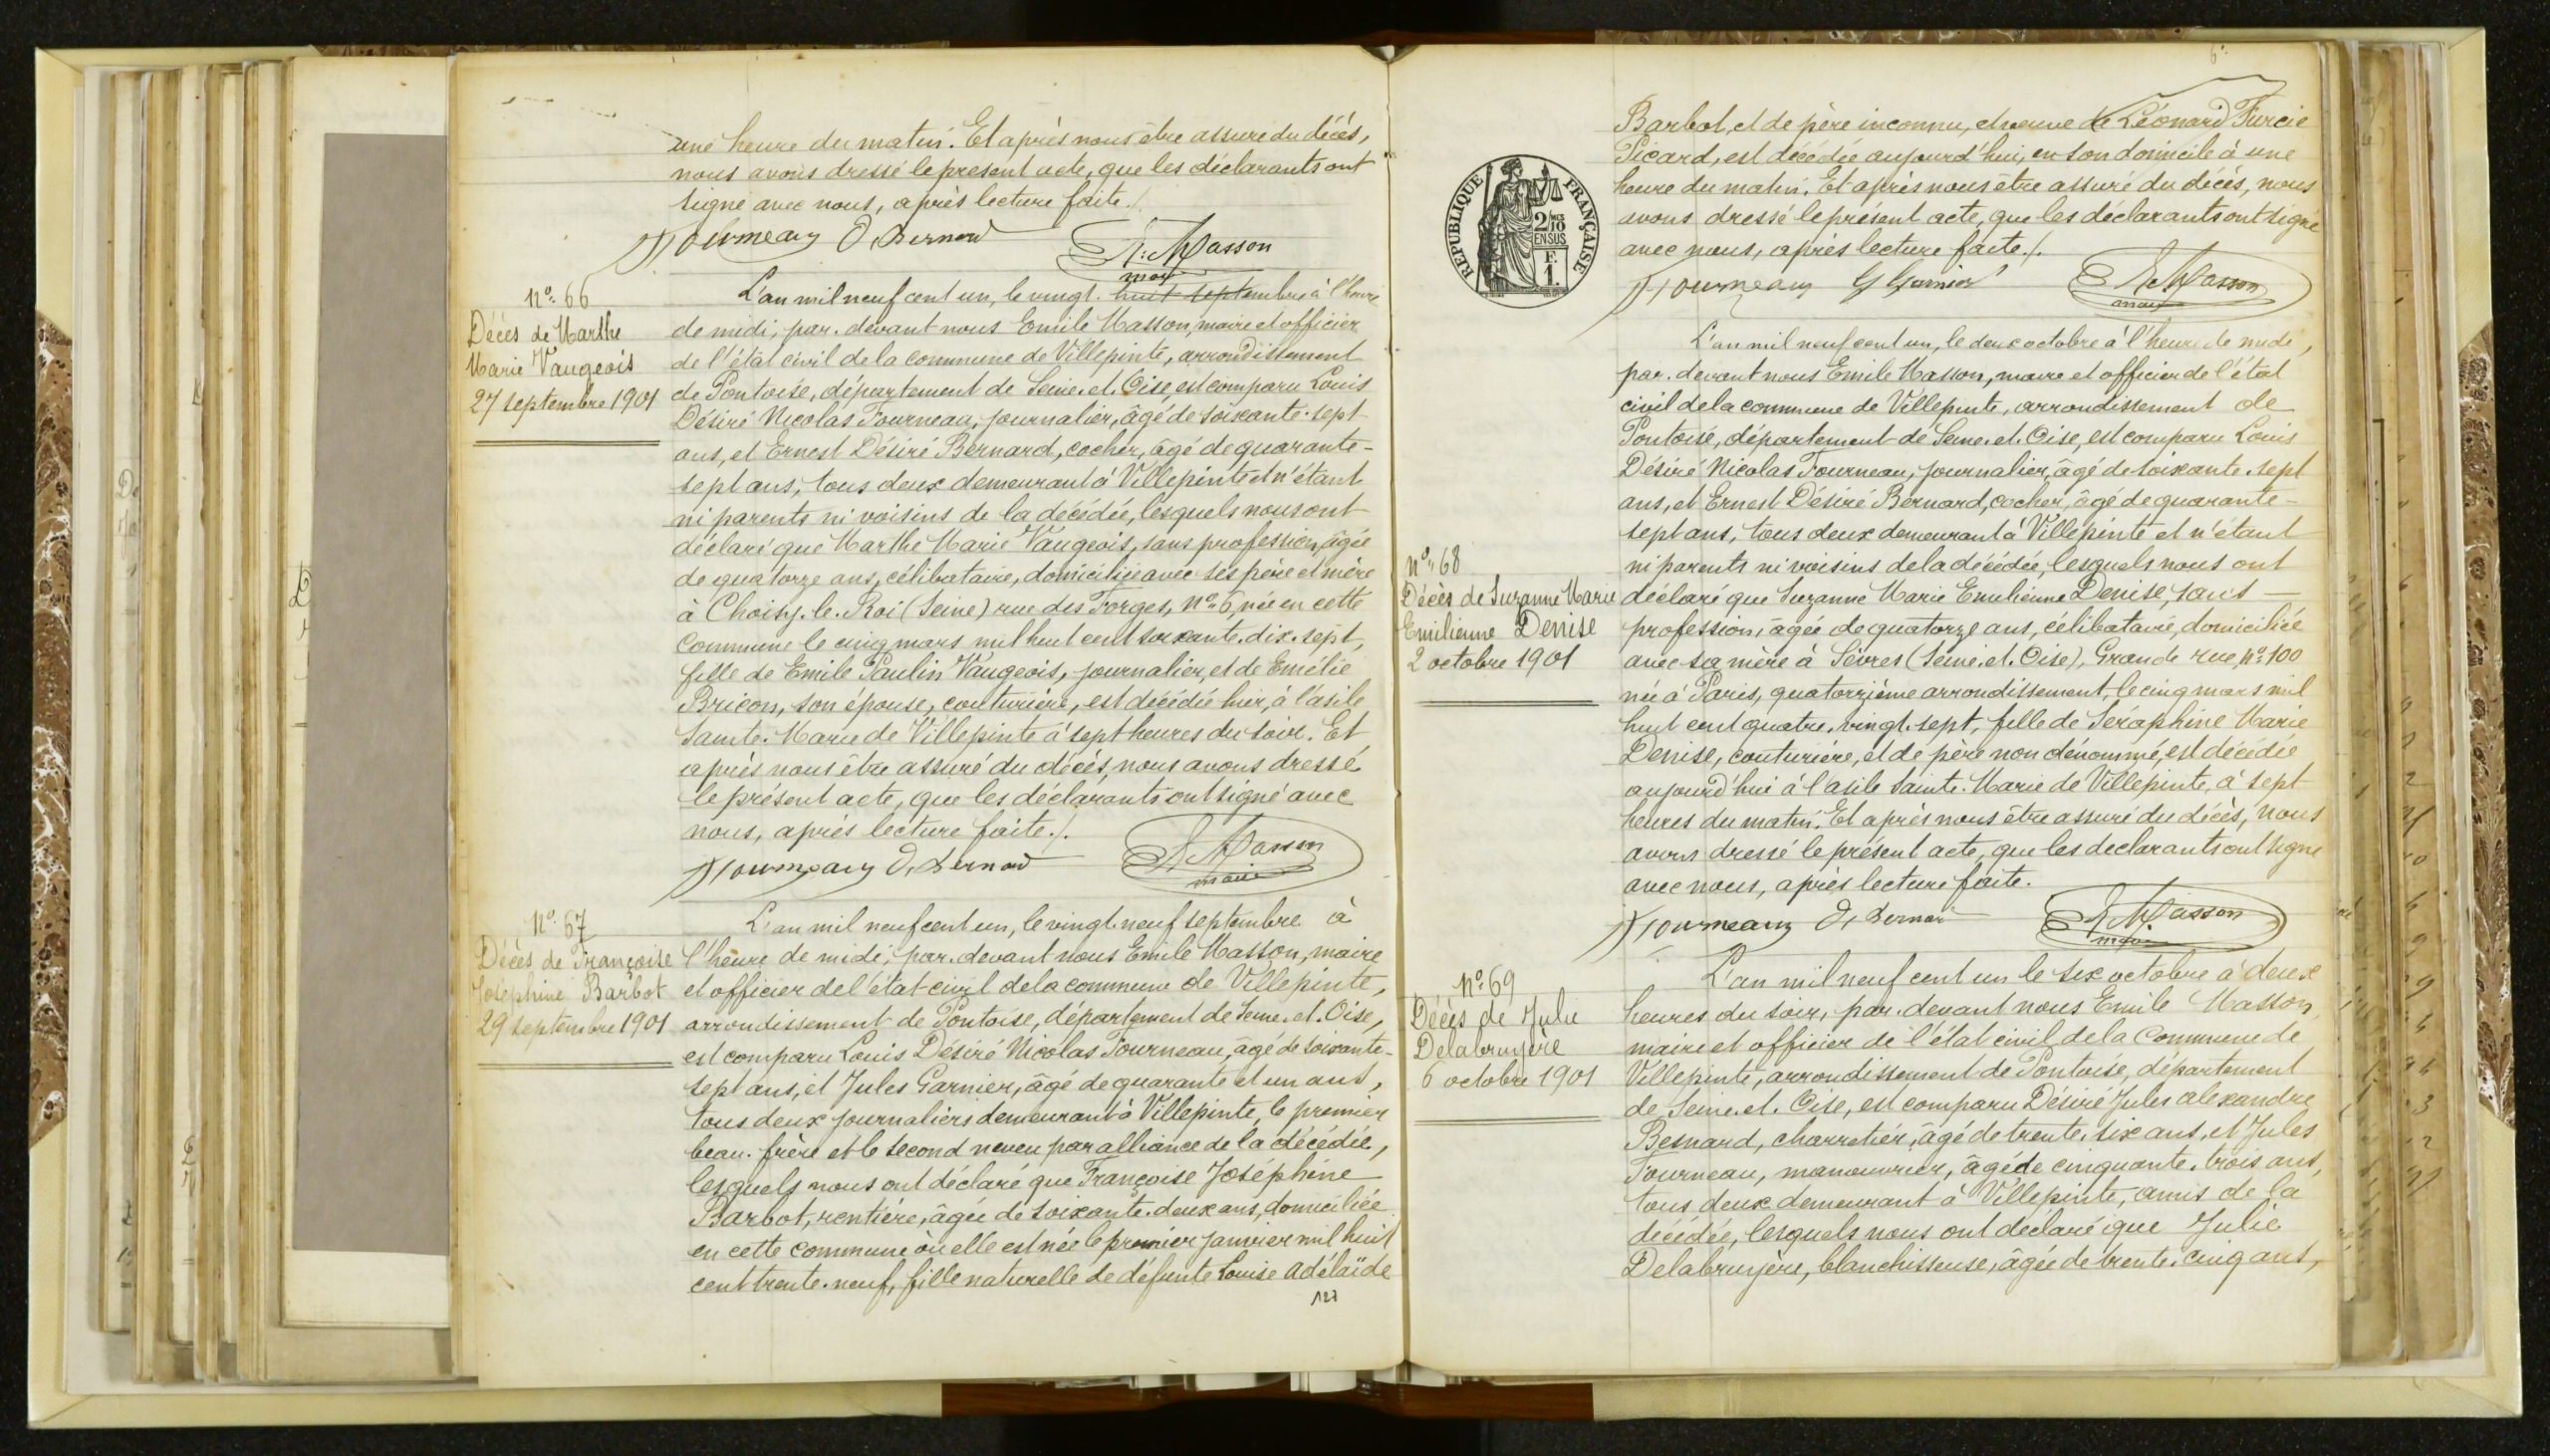 une heure du matin. Et après nous être assuré du décès,
nous avons dressé le présent acte, que les déclarants ont
signé avec nous, après lecture faite./.
Tourneau D. Bernard E. Masson
maire
Nº 66
Décès de Marthe
Marie Vaugeois
27 septembre 1901
L'an mil neuf cent un, le vingt-huit septembre à l'heure
de midi, par-devant nous Emile Masson, maire et officier
de l'état civil de la commune de Villepinte, arrondissement
de Pontoise, département de Seine-et-Oise, est comparu Louis
Désiré Nicolas Tourneau, journalier, âgé de soixante-sept
ans, et Ernest Désiré Bernard, cocher, âgé de quarante-
sept ans, tous deux demeurant à Villepinte et n'étant
ni parents ni voisins de la décédée, lesquels nous ont
déclaré que Marthe Marie Vaugeois, sans profession, âgée
de quatorze ans, célibataire, domiciliée avec ses père et mère
à Choisy-le-Roi (Seine) rue des Forges, Nº 6, née en cette
commune le cinq mars mil huit cent soixante-dix-sept,
fille de Emile Paulin Vaugeois, journalier, et de Emélie
Bricon, son épouse, couturière, est décédée hier, à l'asile
Sainte-Marie de Villepinte à sept heures du soir. Et
après nous être assuré du décès, nous avons dressé
le présent acte, que les déclarants ont signé avec
nous, après lecture faite./.
Tourneau D. Bernard E. Masson
maire
Nº 67
Décès de Françoise
Joséphine Barbot
29 septembre 1901
L'an mil neuf cent un, le vingt-neuf septembre à
l'heure de midi, par-devant nous Emile Masson, maire
et officier de l'état civil de la commune de Villepinte,
arrondissement de Pontoise, département de Seine-et-Oise,
est comparu Louis Désiré Nicolas Tourneau, âgé de soixante-
sept ans, et Jules Garnier, âgé de quarante et un ans,
tous deux journaliers demeurant à Villepinte, le premier
beau-frère et le second neveu par alliance de la décédée,
lesquels nous ont déclaré que Françoise Joséphine
Barbot, rentière, âgée de soixante-deux ans, domiciliée
en cette commune où elle est née le premier janvier mil huit
cent trente-neuf, fille naturelle de défunte Louise Adélaïde
127
Barbot, et de père inconnu, et veuve de Léonard Furcie
Picard, est décédée aujourd'hui, en son domicile à une
heure du matin. Et après nous être assuré du décès, nous
avons dressé le présent acte, que les déclarants ont signé
avec nous, après lecture faite./.
RÉPUBLIQUE FRANÇAISE
2/10
EN SUS
F.
1.
Tourneau G Garnier E. Masson
maire
L'an mil neuf cent un, le deux octobre à l'heure de midi,
par-devant nous Emile Masson, maire et officier de l'état
civil de la commune de Villepinte, arrondissement de
Pontoise, département de Seine-et-Oise, est comparu Louis
Désiré Nicolas Tourneau, journalier, âgé de soixante-sept
ans, et Ernest Désiré Bernard, cocher, âgé de quarante-
sept ans, tous deux demeurant à Villepinte et n'étant
ni parents ni voisins de la décédée, lesquels nous ont
Nº 68
Décès de Suzanne Marie
Emilienne Denise
2 octobre 1901
déclaré que Suzanne Marie Emilienne Denise, sans
profession, âgée de quatorze ans, célibataire, domiciliée
avec sa mère à Sèvres (Seine-et-Oise), Grande rue, Nº 100
née à Paris, quatorzième arrondissement, le cinq mars mil
huit cent quatre-vingt-sept, fille de Séraphine Marie
Denise, couturière, et de père non dénommé, est décédée
aujourd'hui à l'asile Sainte-Marie de Villepinte, à sept
heures du matin. Et après nous être assuré du décès, nous
avons dressé le présent acte, que les déclarants ont signé
avec nous, après lecture faite.
Tourneau D. Bernard E. Masson
maire
Nº 69
Décès de Julie
Delabruyère
6 octobre 1901
L'an mil neuf cent un le six octobre à deux
heures du soir, par-devant nous Emile Masson,
maire et officier de l'état civil de la commune de
Villepinte, arrondissement de Pontoise, département
de Seine-et-Oise, est comparu Désiré Jules Alexandre
Besnard, charretier, âgé de trente-six ans, et Jules
Tourneau, manouvrier, âgé de cinquante-trois ans,
tous deux demeurant à Villepinte, amis de la
décédée, lesquels nous ont déclaré que Julie
Delabruyère, blanchisseuse, âgée de trente-cinq ans,